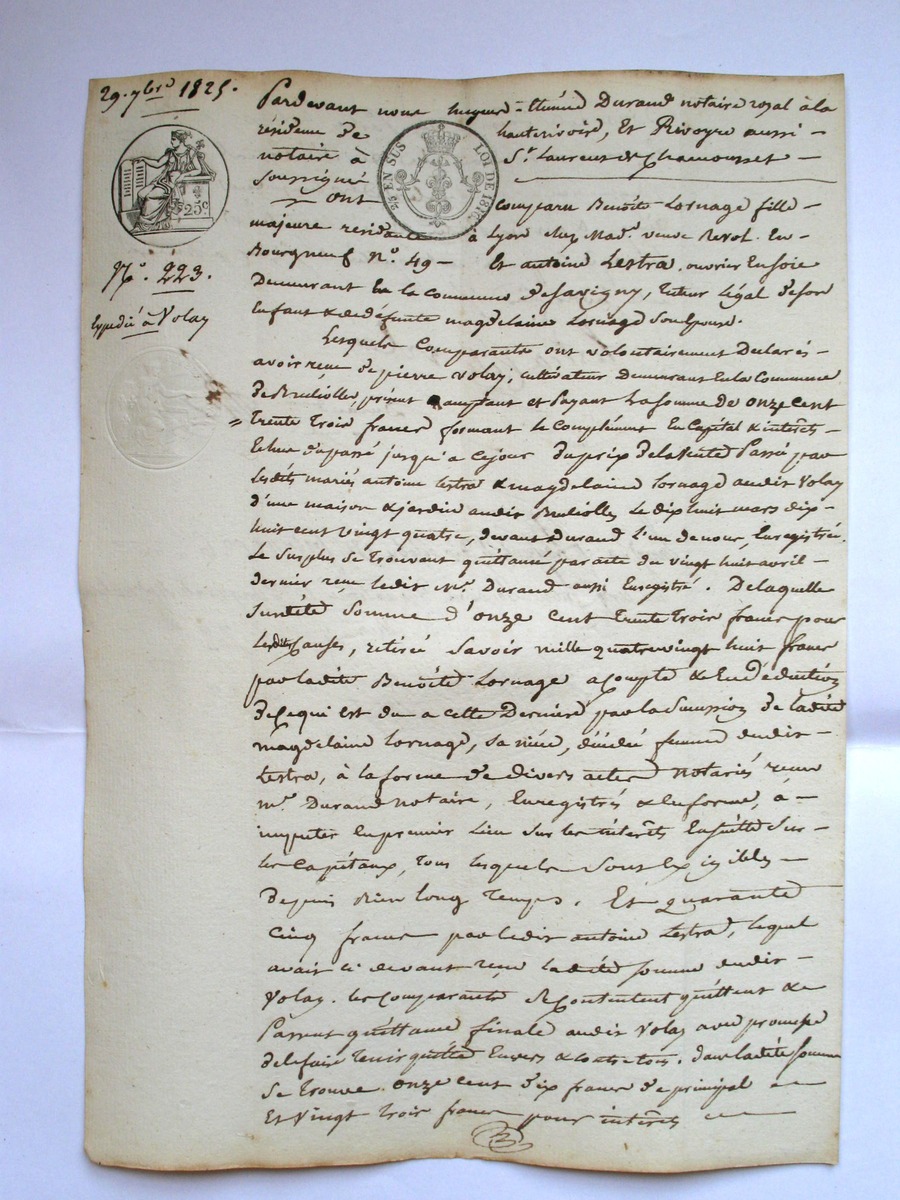 29. 7bre 1825.
25c
N.° 223.
Expedié à Volay
25 EN SUS LOI DE 1816
Pardevant nous hugues = Etienne Durand notaire royal à la
résidence de hauterivoire, Et Rivoyre aussi –
notaire à St. Laurent de Chamousset –
Soussigné
ont comparu Benoite Lornage fille –
majeure résidante à Lyon chez Made. veuve Revol. En –
Bourgneuf N.° 49 – Et antoine Lestra. ouvrier En soie
Demeurant En la commune de Savigny, tuteur légal de son
Enfant & de défunte magdelaine Lornage Son Epouse.
Lesquels Comparants ont volontairement Déclaré –
avoir reçu de pierre Volay, cultivateur Demeurant En la Commune
de Brulioles, présent acceptant et Payant La somme de onze cent
= Trente Trois francs formant le Complément En Capital & intérêts –
jusqu'a ce jour Du prix de la Vente Passé par
Lesdits mariés antoine Lestra & magdelaine Lornage audit Volay
d'une maison & jardin audit Brulioles Le dix huit mars dix –
huit cent vingt quatre, devant Durand L'un de nous, Enregistré.
Le Surplus Se Trouvant quittancé par acte du vingt huit avril –
dernier reçu ledit Me. Durand aussi Enregistré. De laquelle
Susdite Somme d'onze cent Trente Trois francs pour
Lesdites Causes, retirée Savoir mille quatre vingt huit francs
par ladite Benoite Lornage acompte & En déduction
de ce qui est du a cette Derniere par la Succession de ladite
magdelaine Lornage, Sa niéce, décédée femme dudit –
Lestra, à la forme de divers actes notariés reçus
Me. Durand notaire, Enregistrés & En forme, à –
imputer En premier Lieu Sur les intérêts Ensuite Sur –
les Capitaux, Tous lesquels Sont Exigibles –
depuis bien long Temps. Et quarante
Cinq francs par ledit antoine Lestra, lequel
avait ci devant reçu ladite Somme dudit –
Volay. les Comparants Se Contentent quittent &
Passent quittance finale audit Volay avec promesse
de le faire Tenir quitte Envers & Contre tous. dans ladite Somme
Se Trouve onze cent dix francs de principal –
Et Vingt Trois francs pour intérêts –